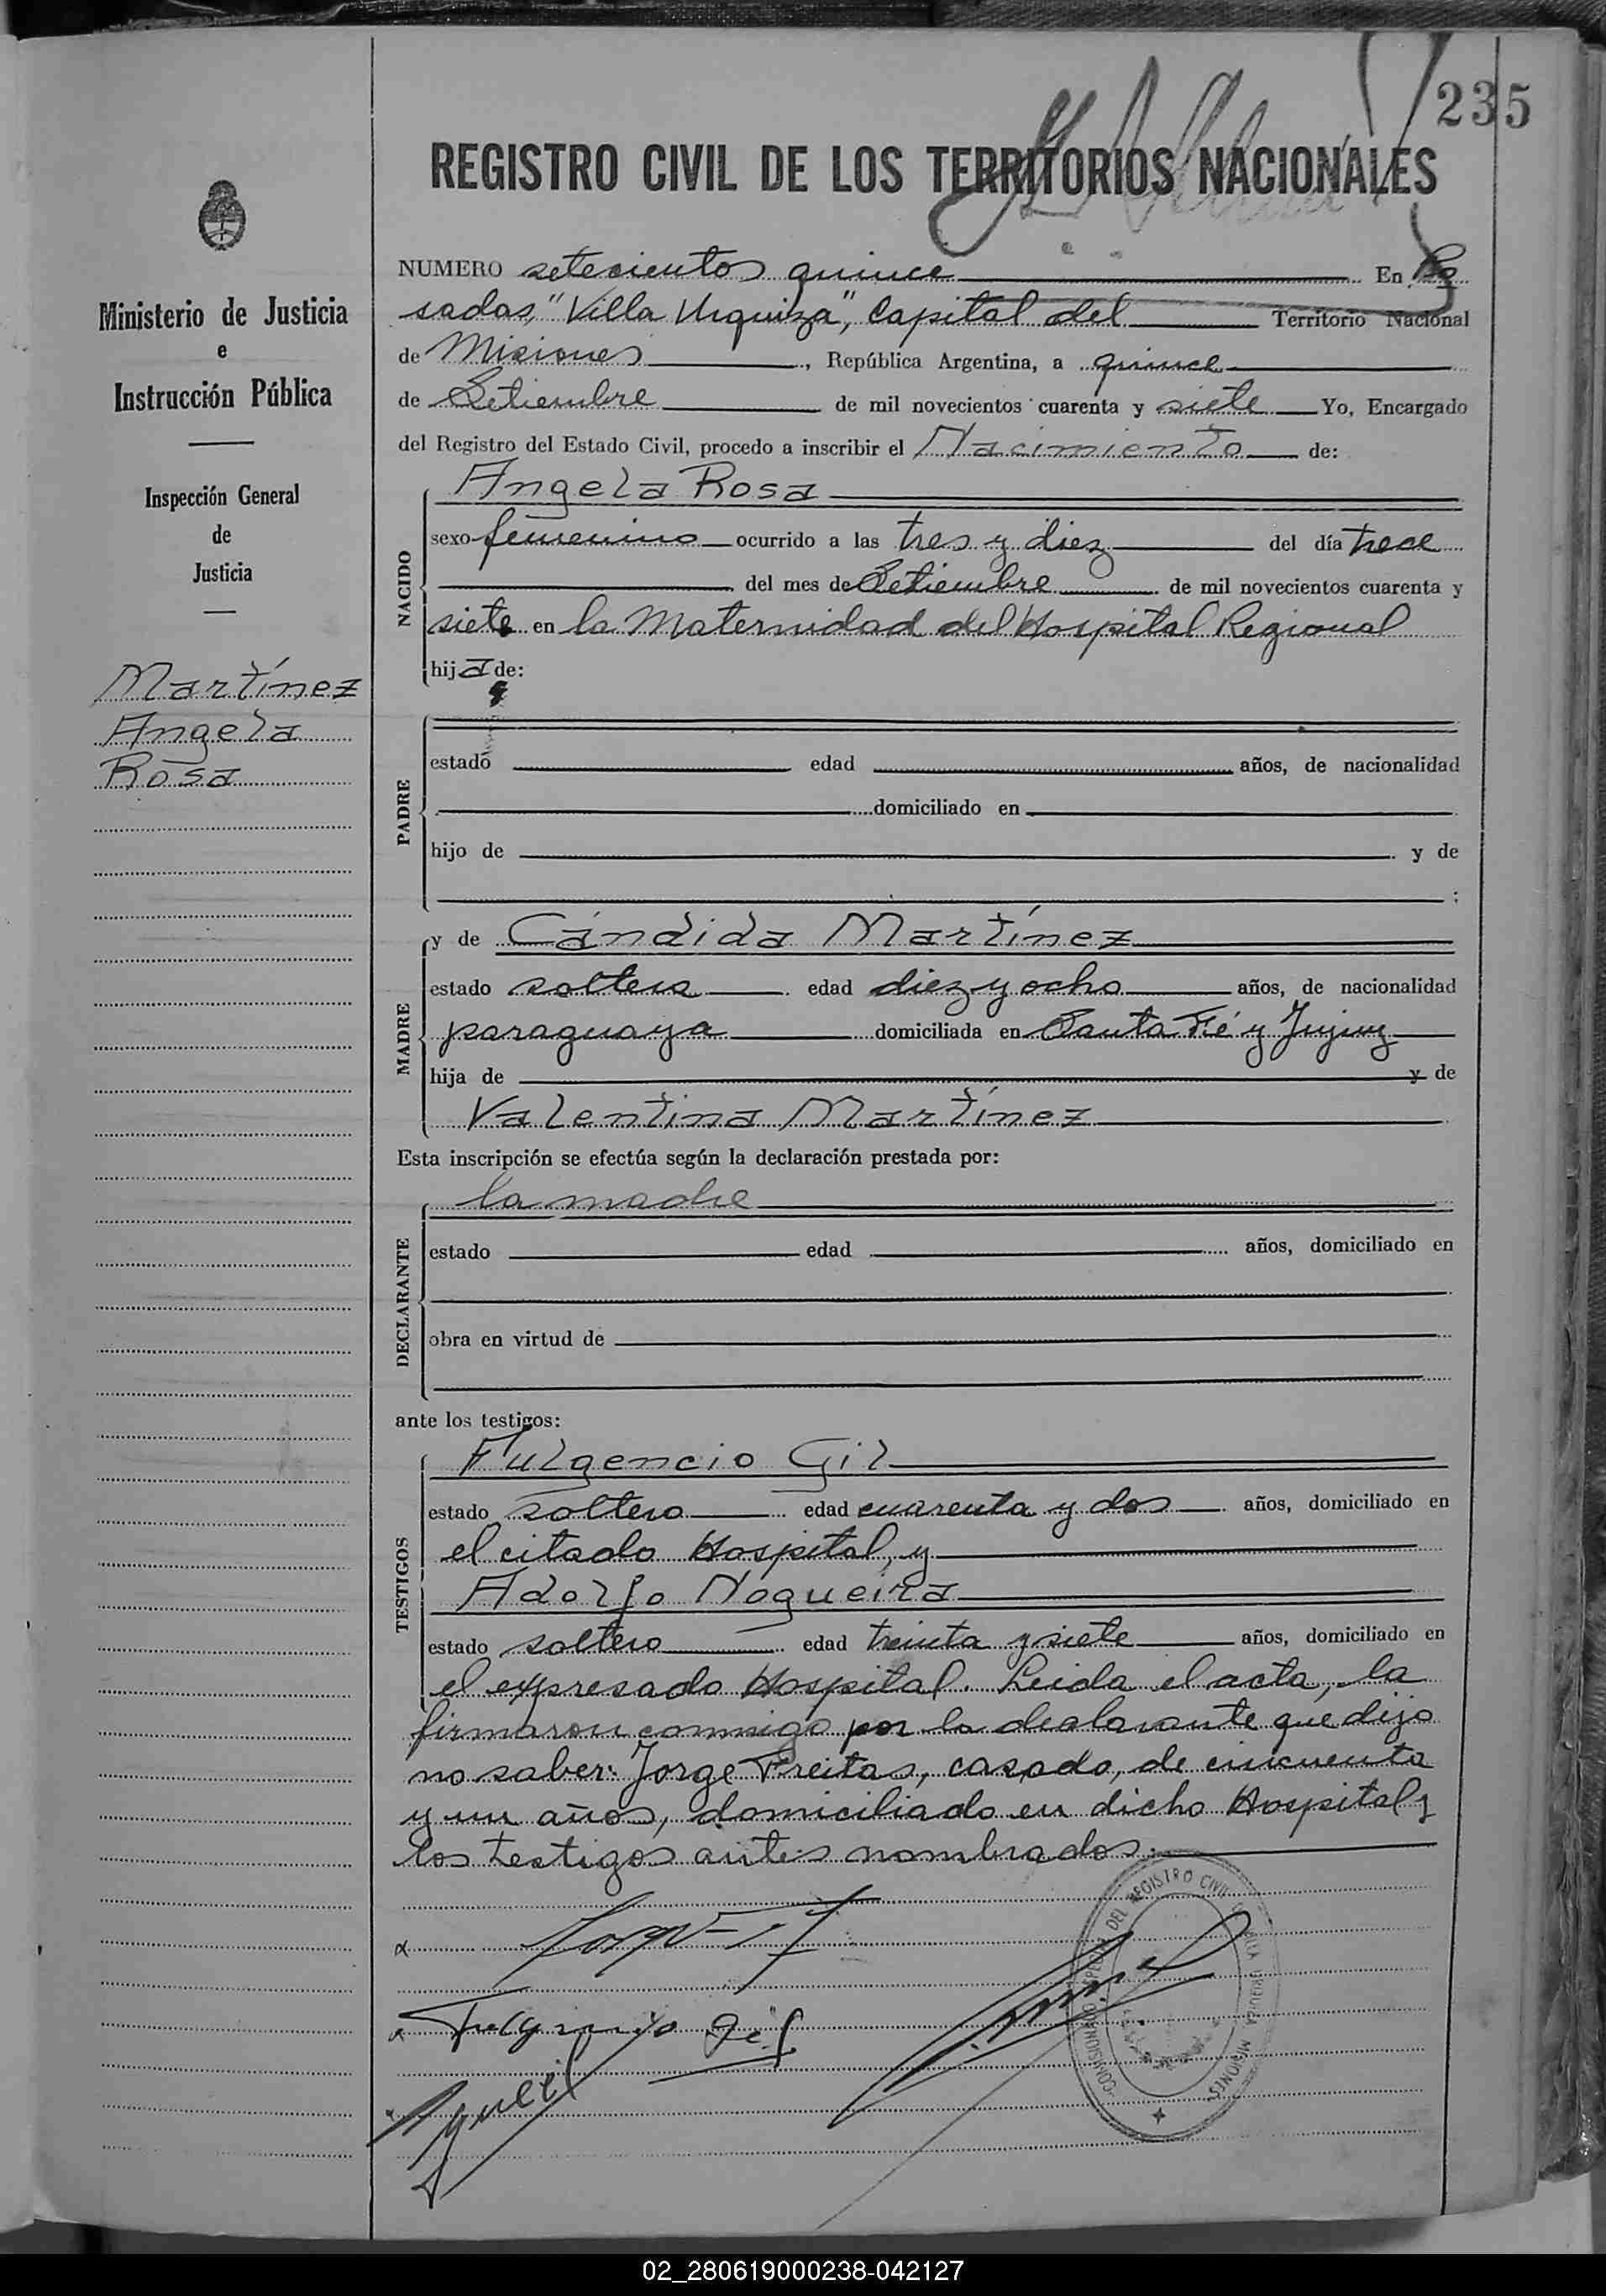 235
REGISTRO CIVIL DE LOS TERRITORIOS NACIONALES
Ministerio de Justicia
e
Instrucción Pública
Inspección General
de
Justicia
Martínez
Angela
Rosa
NUMERO setecientos quince En Po
sadas, "Villa Urquiza", Capital del Territorio Nacional
de Misiones, República Argentina, a quince
de Setiembre de mil novecientos cuarenta y siete Yo, Encargado
del Registro del Estado Civil, procedo a inscribir el Nacimiento de:
NACIDO
Angela Rosa
sexo femenino ocurrido a las tres y diez del día trece
del mes de Setiembre de mil novecientos cuarenta y
siete en la Maternidad del Hospital Regional
hija de:
PADRE
estado edad años, de nacionalidad
domiciliado en
hijo de y de
;
MADRE
y de Cándida Martínez
estado soltera edad diez y ocho años, de nacionalidad
paraguaya domiciliada en Santa Fé y Jujuy
hija de y de
Valentina Martínez
Esta inscripción se efectúa según la declaración prestada por:
DECLARANTE
la madre
estado edad años, domiciliado en
obra en virtud de
ante los testigos:
TESTIGOS
Fulgencio Gil
estado soltero edad cuarenta y dos años, domiciliado en
el citado Hospital, y
Adolfo Nogueira
estado soltero edad treinta y siete años, domiciliado en
el expresado Hospital. Leida el acta, la
firmaron conmigo por la dealarante que dijo
no saber: Jorge Freitas, casado, de cincuenta
y un años, domiciliado en dicho Hospital y
los testigos antes nombrados.
Fulgencio Gil
DEL REGISTRO CIVIL VILLA URQUIZA MISIONES
02_280619000238-042127